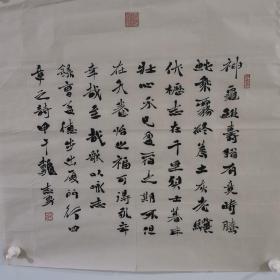 神龜雖壽猶有竟時騰
蛇乘霧終為土灰老驥
伏櫪志在千里烈士暮年
壯心不已盈縮之期不但
在天養怡之福可得永年
幸甚至哉歌以詠志
錄曹孟德步出夏門行四
章之詩甲午